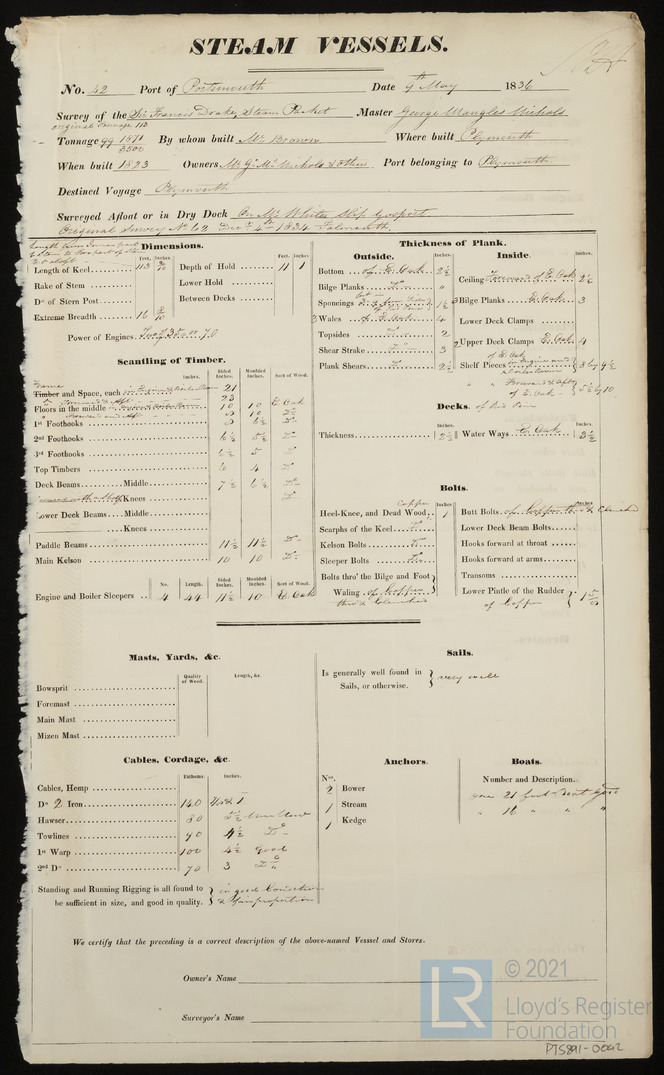 STEAM VESSELS.
No. 42 Port of Portsmouth Date 9th May 1836
Survey of the Sir Francis Drake, Steam Packet Master George Mangles Nichols
original Tonnage 110
Tonnage 99 1871/3500 By whom built Mr. Brown Where built Plymouth
When built 1823 Owners Nichols & Others Port belonging to Plymouth
Destined Voyage Plymouth
Surveyed Afloat or in Dry Dock On Mr. Whites Slip Gosport
Original Survey No 62 Decr 4th 1834 Falmouth
Dimensions.
Feet. Inches. Feet. Inches
Length of Keel 113 Depth of Hold 11 1
Rake of Stem Lower Hold
Do of Stern Post Between Decks
Extreme Breadth 16
Power of Engines. Two of 35 or 70
Scantling of Timber.
Inches. Sided Inches. Moulded Inches. Sort of Wood.
Frame
Timber and Space, each in Engine & Boiler Room 21
23
Floors in the middle 10 10 E Oak
8 10 Do
1st Foothooks 8 6½ Do
2nd Foothooks 6½ 5½ Do
3rd Foothooks 6½ 5 Do
Top Timbers 6 4 Do
Deck Beams Middle 7½ 6½ Do
Knees Do
Lower Deck Beams Middle
Knees
Paddle Beams 11½ 11½ Do
Main Kelson 10 10 Do
No. Length. Sided Inches. Moulded Inches. Sort of Wood.
Engine and Boiler Sleepers 4 44 11½ 10 E Oak
Thickness of Plank.
Outside. Inches.
Bottom of E. Oak 2½
Bilge Planks Do
Sponcings
Wales of E. Oak 4
Topsides Do 2
Shear Strake Do 3
Plank Shears Do 2½
Inside. Inches.
Ceiling of E Oak 2½
Bilge Planks E. Oak 3
Lower Deck Clamps
Upper Deck Clamps E. Oak 4
of E Oak
Shelf Pieces in Engine and Boiler Room 3 by 9½
Forward & Aft
of E. Oak 5½ by 10
Decks.
Inches. Inches.
Thickness 2½ Water Ways E. Oak 3½
Bolts.
Copper Inches Inches
Heel-Knee, and Dead Wood 1 Butt Bolts of Copper thro & Clenched
Scarphs of the Keel Do Lower Deck Beam Bolts
Kelson Bolts Do Hooks forward at throat
Sleeper Bolts Do Hooks forward at arms
Bolts thro' the Bilge and Foot Transoms
Waling of Copper Lower Pintle of the Rudder
thro & Clenched of Copper
Masts, Yards, &c.
Quality of Wood. Length, &c.
Bowsprit
Foremast
Main Mast
Mizen Mast
Sails.
Is generally well found in
Sails, or otherwise. very well
Cables, Cordage, &c.
Fathoms. Inches.
Cables, Hemp
Do 2 Iron 140
Hawser 80 5½
Towlines 90 4½ Do
1st Warp 100 4½ Good
2nd Do 70 3 Do
Standing and Running Rigging is all found to
be sufficient in size, and good in quality. in good Condition
& fair proportion
Anchors.
Nos.
2 Bower
1 Stream
1 Kedge
Boats.
Number and Description.
one 21 feet Boat good
" 16 " " "
We certify that the preceding is a correct description of the above-named Vesssel and Stores.
Owner's Name
Surveyor's Name
LR
© 2021
Lloyd's Register
Foundation
PTS891-0042